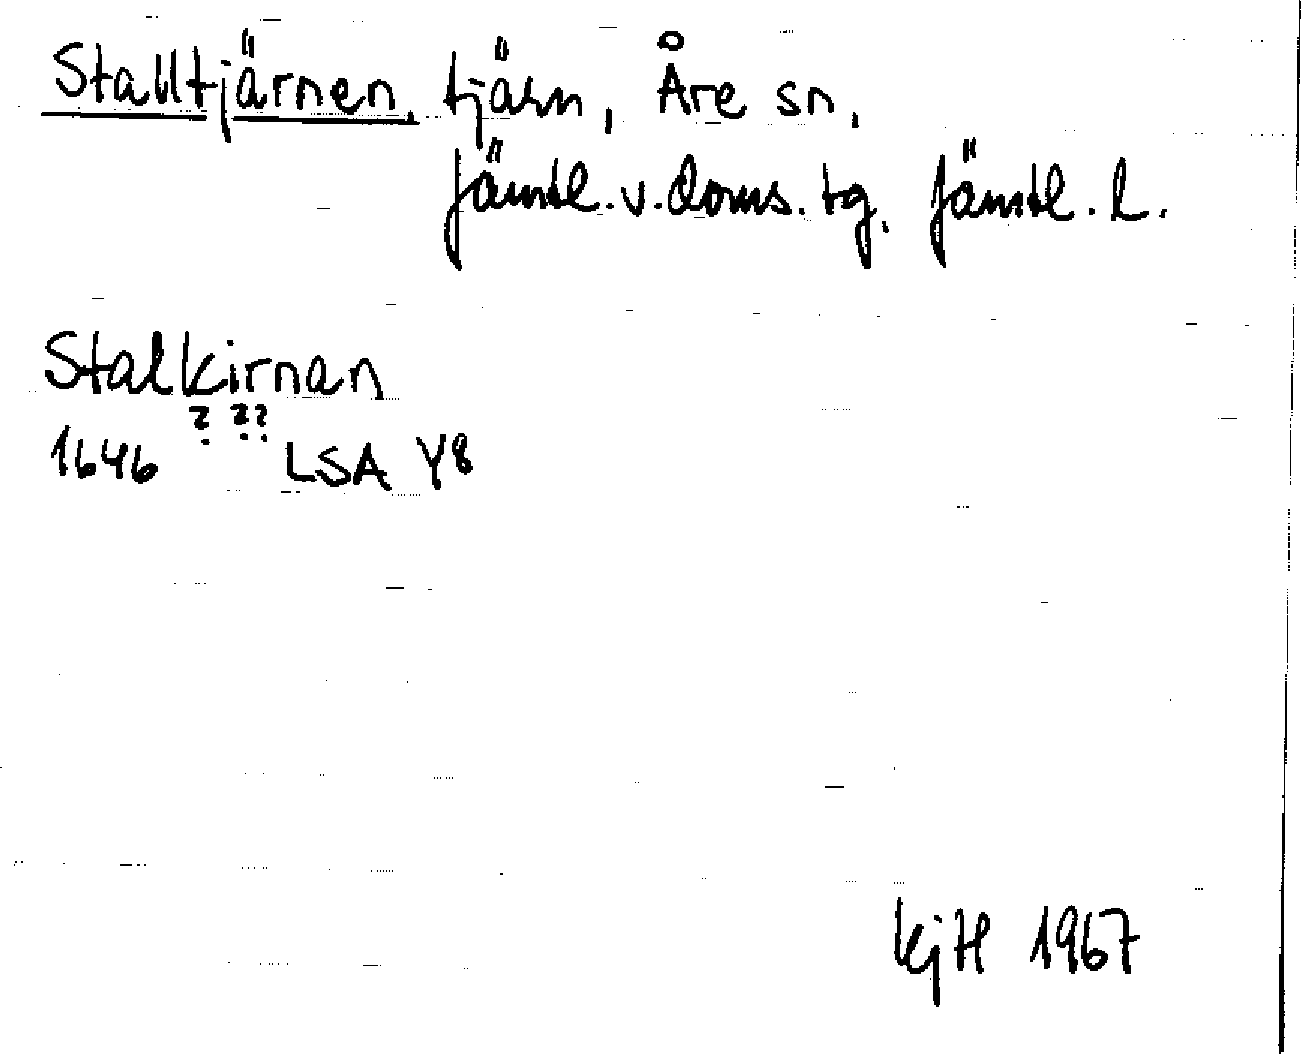 Stalltjärnen, tjärn, Åre sn,
Jämtl. v. doms. tg, Jämtl. l.
Stalkirnan
? ??
1646 LSA Y8
KjH 1967